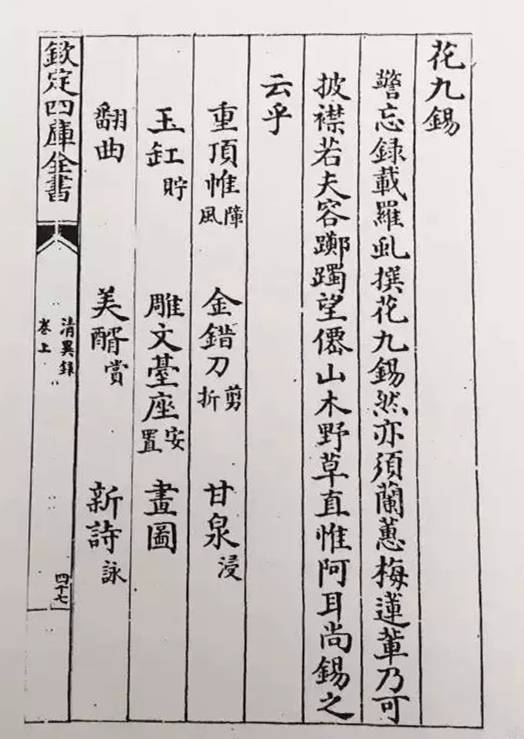 花九錫
警忘録載羅虬撰花九錫然亦須蘭蕙梅蓮輩乃可
披襟若夫容躑躅望僊山木野草直惟阿耳尚錫之
云乎
重頂帷障風 金錯刀剪折 甘泉浸
玉缸貯 雕文臺座安置 畫圖
翻曲 美醑賞 新詩詠
欽定四庫全書 清異録 卷上 四十七